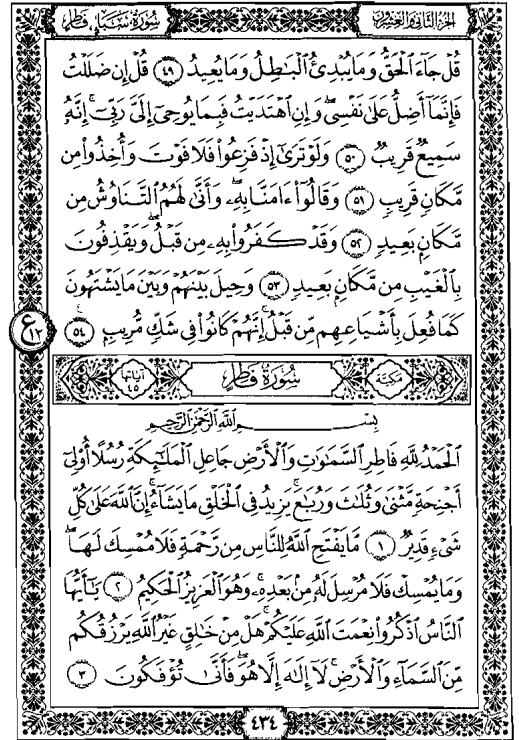 الجزء الثاني والعشرون
سورة سبإ، فاطر
قُلْ جَآءَ ٱلْحَقُّ وَمَا يُبْدِئُ ٱلْبَٰطِلُ وَمَا يُعِيدُ ٤٩ قُلْ إِن ضَلَلْتُ
فَإِنَّمَآ أَضِلُّ عَلَىٰ نَفْسِىۖ وَإِنِ ٱهْتَدَيْتُ فَبِمَا يُوحِىٓ إِلَىَّ رَبِّىٓۚ إِنَّهُۥ
سَمِيعٌ قَرِيبٌ ٥٠ وَلَوْ تَرَىٰٓ إِذْ فَزِعُوا۟ فَلَا فَوْتَ وَأُخِذُوا۟ مِن
مَّكَانٍ قَرِيبٍ ٥١ وَقَالُوٓا۟ ءَامَنَّا بِهِۦۖ وَأَنَّىٰ لَهُمُ ٱلتَّنَاوُشُ مِن
مَّكَانٍۭ بَعِيدٍ ٥٢ وَقَدْ كَفَرُوا۟ بِهِۦ مِن قَبْلُۖ وَيَقْذِفُونَ
بِٱلْغَيْبِ مِن مَّكَانٍۭ بَعِيدٍ ٥٣ وَحِيلَ بَيْنَهُمْ وَبَيْنَ مَا يَشْتَهُونَ
كَمَا فُعِلَ بِأَشْيَاعِهِم مِّن قَبْلُۚ إِنَّهُمْ كَانُوا۟ فِى شَكٍّ مُّرِيبٍۭ ٥٤
ع ١٢
مكية
سورة فاطر
آياتها ٤٥
بسم الله الرحمن الرحيم
ٱلْحَمْدُ لِلَّهِ فَاطِرِ ٱلسَّمَٰوَٰتِ وَٱلْأَرْضِ جَاعِلِ ٱلْمَلَٰٓئِكَةِ رُسُلًا أُو۟لِىٓ
أَجْنِحَةٍ مَّثْنَىٰ وَثُلَٰثَ وَرُبَٰعَۚ يَزِيدُ فِى ٱلْخَلْقِ مَا يَشَآءُۚ إِنَّ ٱللَّهَ عَلَىٰ كُلِّ
شَىْءٍ قَدِيرٌ ١ مَّا يَفْتَحِ ٱللَّهُ لِلنَّاسِ مِن رَّحْمَةٍ فَلَا مُمْسِكَ لَهَاۖ
وَمَا يُمْسِكْ فَلَا مُرْسِلَ لَهُۥ مِنۢ بَعْدِهِۦۚ وَهُوَ ٱلْعَزِيزُ ٱلْحَكِيمُ ٢ يَٰٓأَيُّهَا
ٱلنَّاسُ ٱذْكُرُوا۟ نِعْمَتَ ٱللَّهِ عَلَيْكُمْۚ هَلْ مِنْ خَٰلِقٍ غَيْرُ ٱللَّهِ يَرْزُقُكُم
مِّنَ ٱلسَّمَآءِ وَٱلْأَرْضِۚ لَآ إِلَٰهَ إِلَّا هُوَۖ فَأَنَّىٰ تُؤْفَكُونَ ٣
٤٣٤